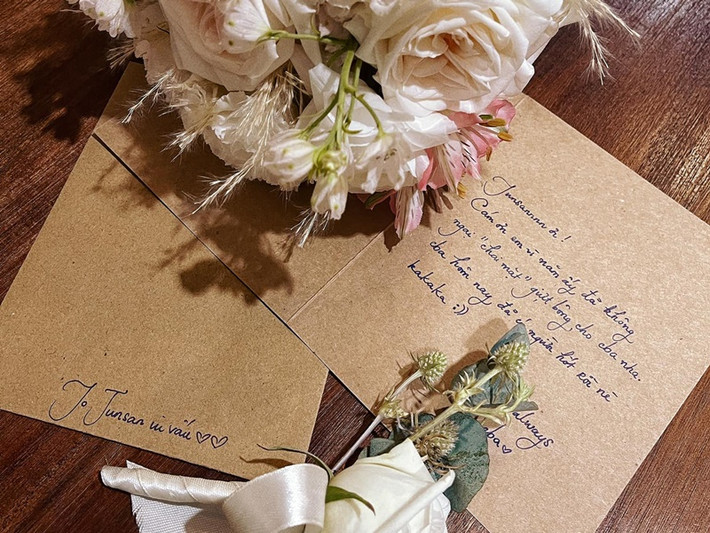 Junsannnn ơi!
Cám ơn em vì năm ấy đã không
ngại "chai mặt" giựt bông cho cba nha.
cba hôm nay đã có người hốt rồi nè
kakaka :))
always
ba♡
To Junsan iu vấu ♡♡